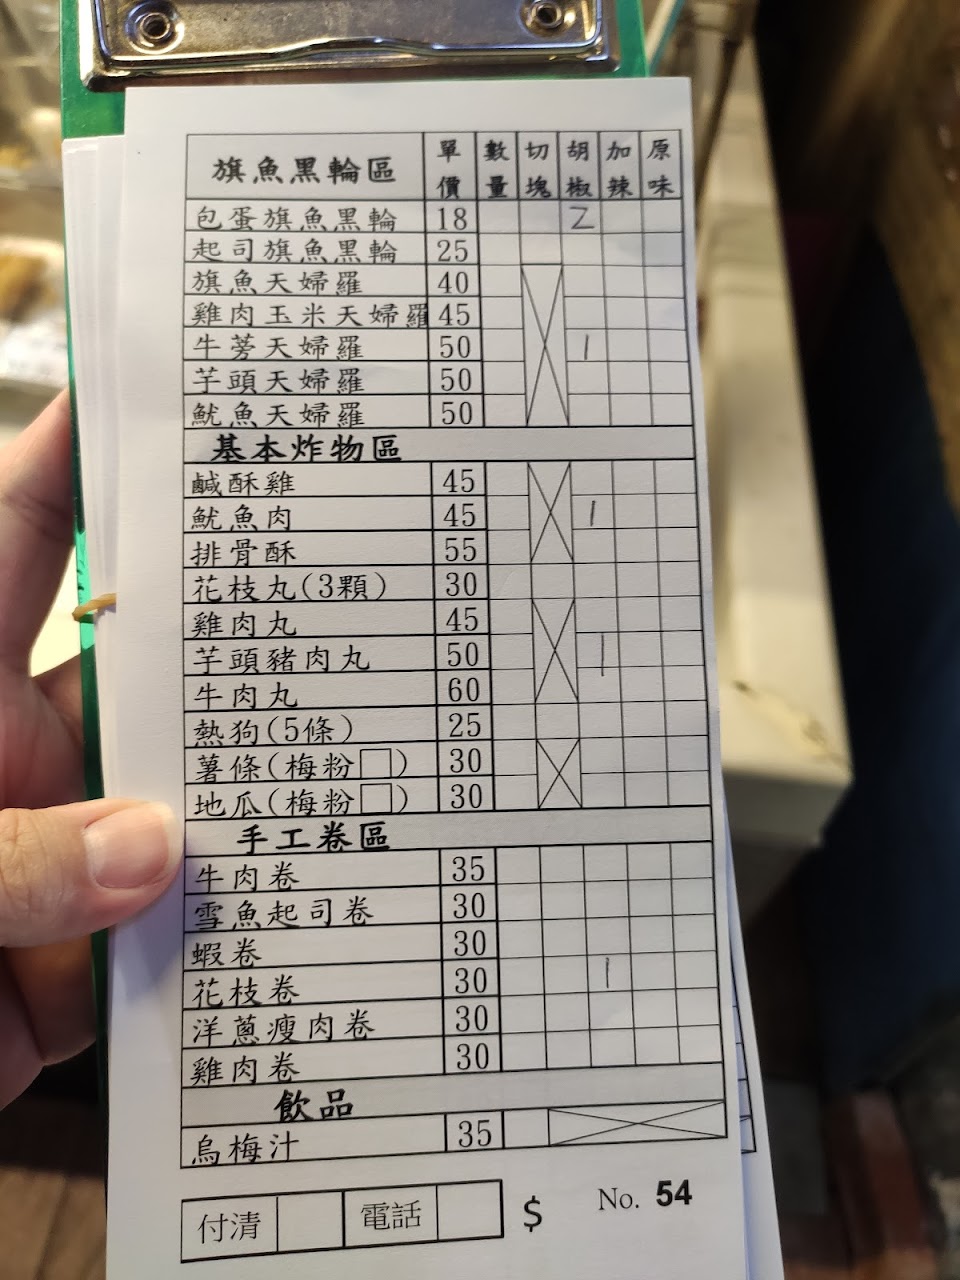 旗魚黑輪區 單價 數量 切塊 胡椒 加辣 原味
包蛋旗魚黑輪 18 2
起司旗魚黑輪 25
旗魚天婦羅 40
雞肉玉米天婦羅 45
牛蒡天婦羅 50 1
芋頭天婦羅 50
魷魚天婦羅 50
基本炸物區
鹹酥雞 45
魷魚肉 45 1
排骨酥 55
花枝丸(3顆) 30
雞肉丸 45
芋頭豬肉丸 50 1
牛肉丸 60
熱狗(5條) 25
薯條(梅粉□) 30
地瓜(梅粉□) 30
手工卷區
牛肉卷 35
雪魚起司卷 30
蝦卷 30
花枝卷 30 1
洋蔥瘦肉卷 30
雞肉卷 30
飲品
烏梅汁 35
付清 電話 $ No. 54